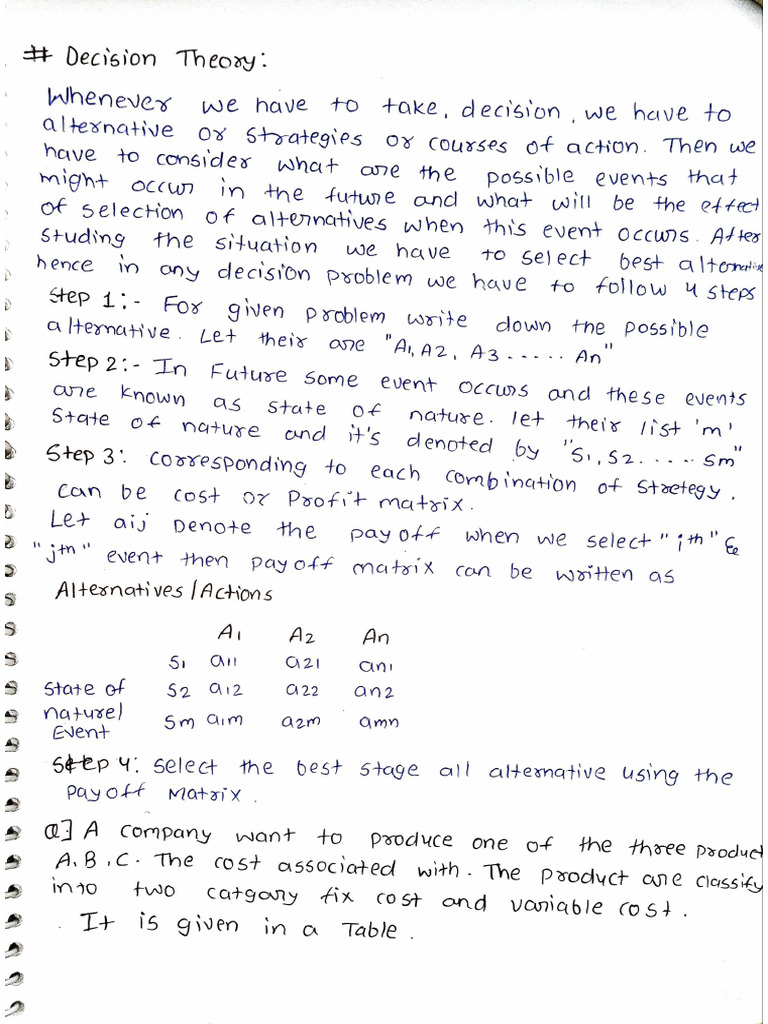 # Decision Theory:
Whenever we have to take, decision, we have to
alternative or strategies or courses of action. Then we
have to consider what are the possible events that
might occur in the future and what will be the effect
of selection of alternatives when this event occurs. After
studing the situation we have to select best alternative
hence in any decision problem we have to follow 4 steps
Step 1:- For given problem write down the possible
alternative. Let their are "A1, A2, A3 ..... An"
Step 2:- In Future some event occurs and these events
are known as state of nature. let their list 'm'
State of nature and it's denoted by "S1, S2 ..... Sm"
Step 3: corresponding to each combination of stretegy.
can be cost or Profit matrix.
Let aij Denote the pay off when we select "ith" &
"jth" event then pay off matrix can be written as
Alternatives/Actions
A1 A2 An
S1 a11 a21 an1
State of S2 a12 a22 an2
nature/ Sm a1m a2m amn
Event
Step 4: select the best stage all alternative using the
pay off Matrix.
Q] A company want to produce one of the three product
A, B, C. The cost associated with. The product are classify
into two catgary fix cost and variable cost.
. It is given in a Table.